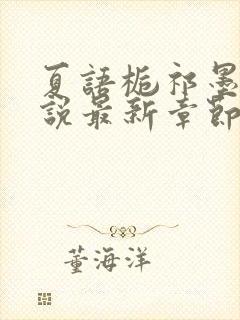 夏語栀祁墨
説最新章節
董海洋